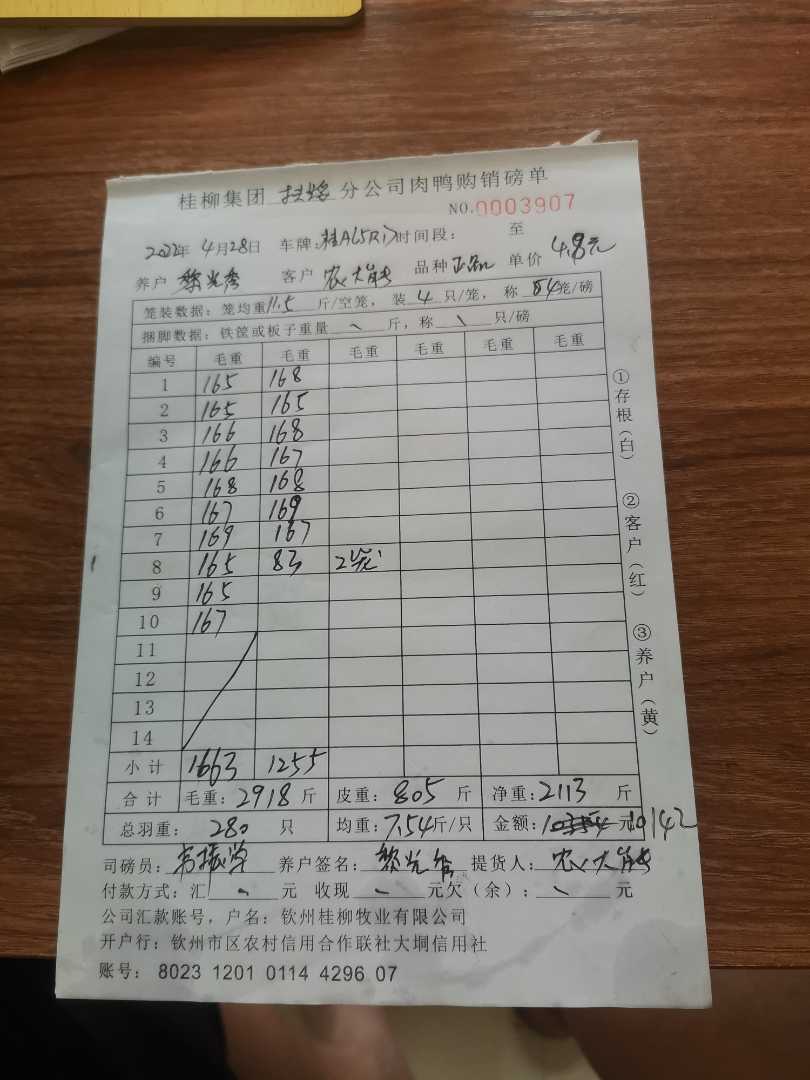 桂柳集团 分公司肉鸭购销磅单
NO.0003907
2022年 4月28日 车牌: 桂A 时间段: 至
养户 黎光秀 客户 农大 品种 正品 单价 4.8元
笼装数据: 笼均重11.5 斤/空笼, 装 4 只/笼, 称 4笼/磅
捆脚数据: 铁筐或板子重量 、 斤, 称 、 只/磅
编号 毛重 毛重 毛重 毛重 毛重 毛重
1 165 168
2 165 165
3 166 168
4 166 167
5 168 168
6 167 169
7 169 167
8 165 83 2笼
9 165
10 167
11
12
13
14
小计 1663 1255
合计 毛重: 2918 斤 皮重: 805 斤 净重: 2113 斤
总羽重: 280 只 均重: 7.54斤/只 金额: 元 10142
司磅员: 韦振学 养户签名: 提货人: 农大
付款方式: 汇 、 元 收现 、 元欠(余): 、 元
公司汇款账号, 户名: 钦州桂柳牧业有限公司
开户行: 钦州市区农村信用合作联社大垌信用社
账号: 8023 1201 0114 4296 07
①存根(白)
②客户(红)
③养户(黄)